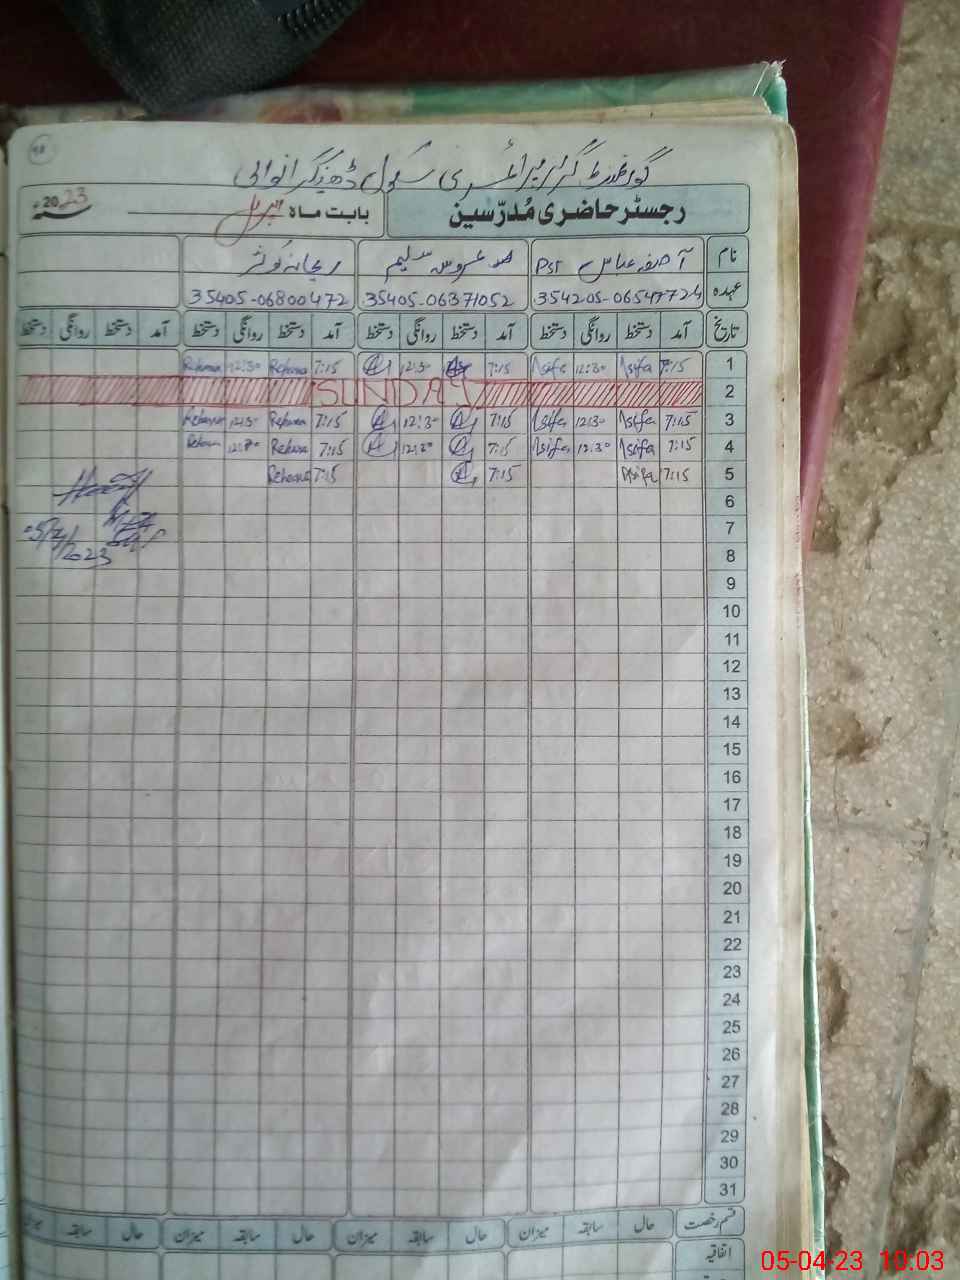 گورنمنٹ گرلز پرائمری سکول
رجسٹر حاضری مُدرّسین
بابت ماہ اپریل
2023ء
نام آصفہ عباس PST سلیم ریحانہ کوثر
عہدہ 35405-06371052 35405-06800472
تاریخ آمد دستخط روانگی دستخط آمد دستخط روانگی دستخط آمد دستخط روانگی دستخط آمد دستخط روانگی دستخط
1 7:15 Asifa 12:30 Asifa 7:15 12:30 7:15 Rehana 12:30 Rehana
2 SUNDAY
3 7:15 Asifa 12:30 Asifa 7:15 12:30 7:15 Rehana 12:30 Rehana
4 7:15 Asifa 12:30 Asifa 7:15 12:30 7:15 Rehana 12:30 Rehana
5 7:15 Asifa 7:15 7:15 Rehana
6
7
5/4/2023
8
9
10
11
12
13
14
15
16
17
18
19
20
21
22
23
24
25
26
27
28
29
30
31
قسم رخصت حال سابقہ میزان حال سابقہ میزان حال سابقہ میزان حال سابقہ میزان
اتفاقیہ
05-04-23 10:03